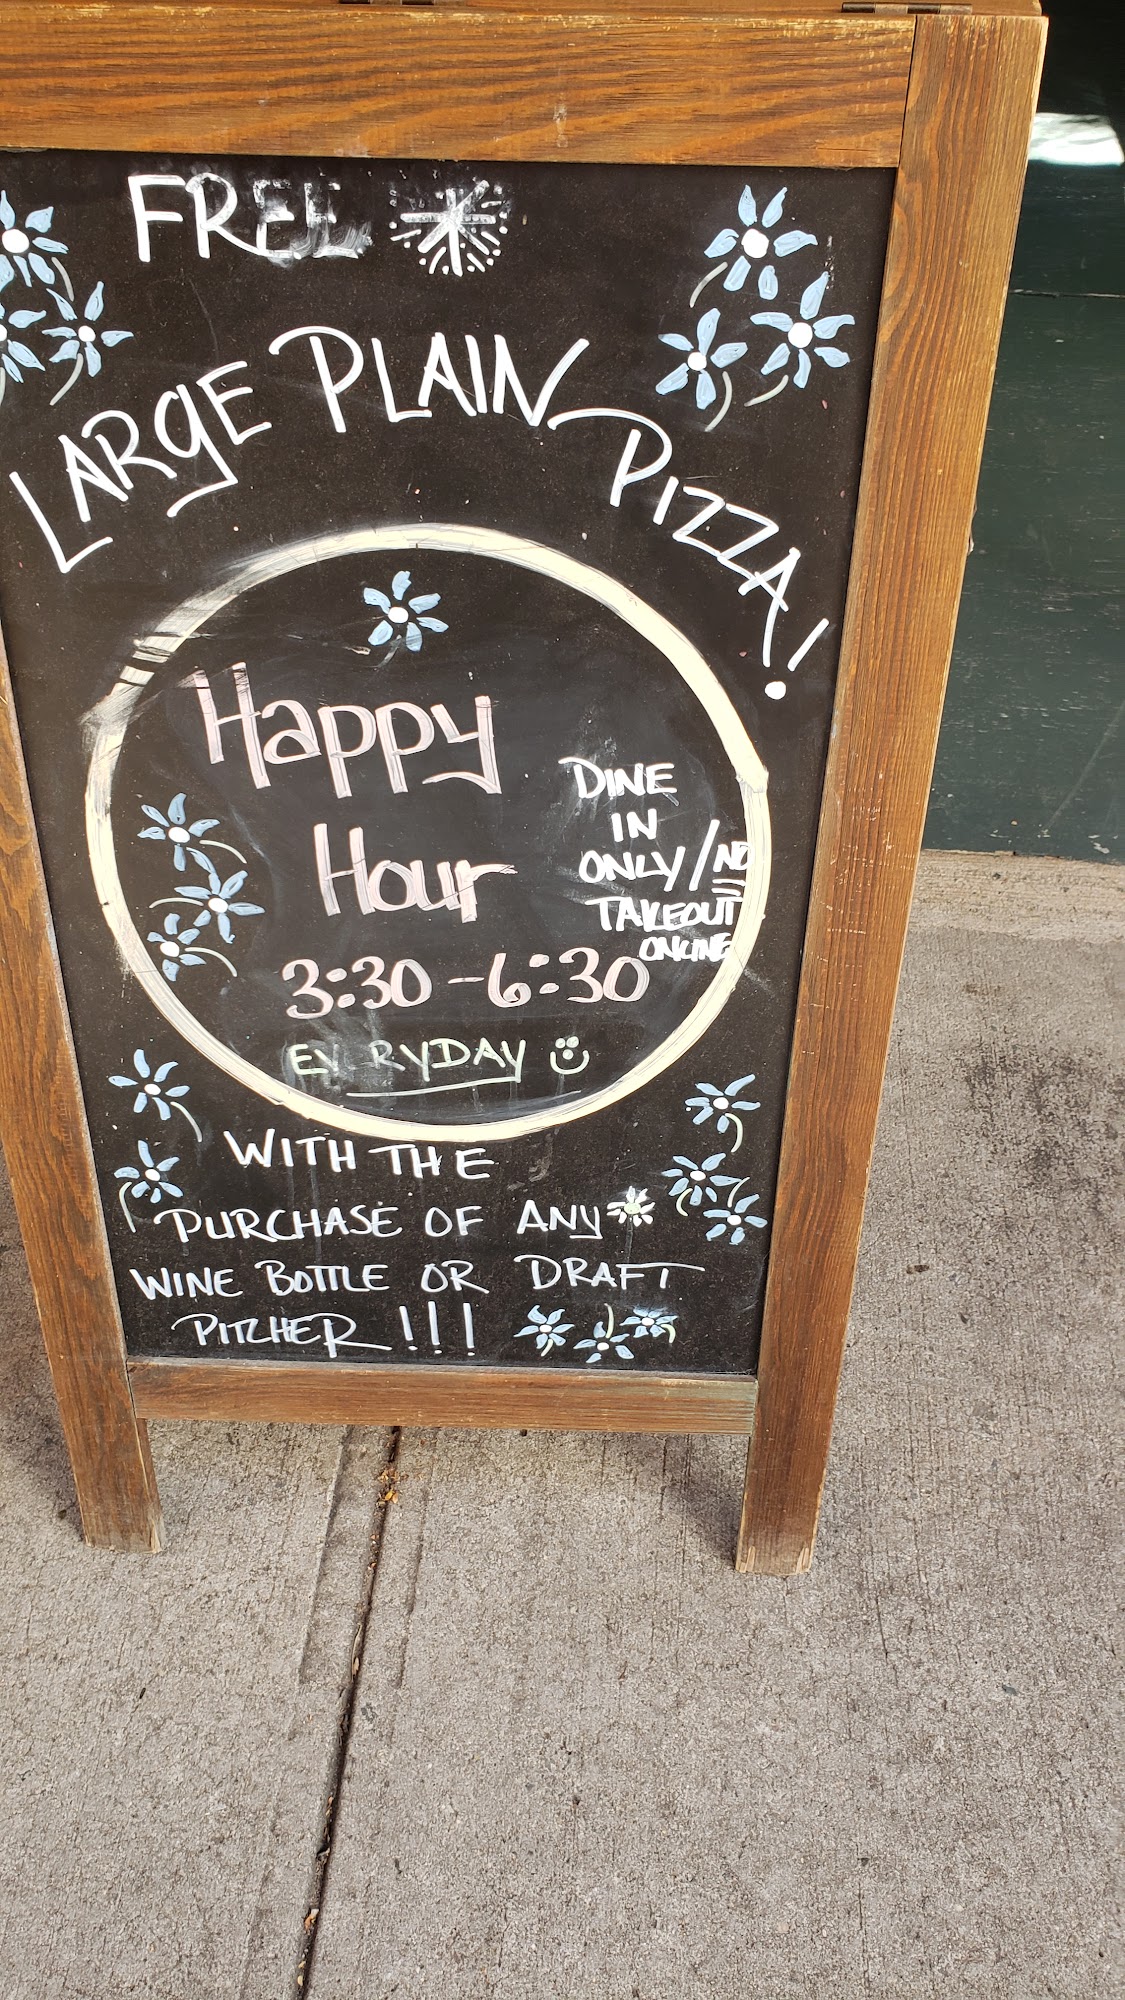 FREE
LARGE PLAIN PIZZA!
Happy
Hour
3:30-6:30
EVERYDAY
DINE
IN
ONLY/NO
TAKEOUT
ONLINE
WITH THE
PURCHASE OF ANY
WINE BOTTLE OR DRAFT
PITCHER!!!